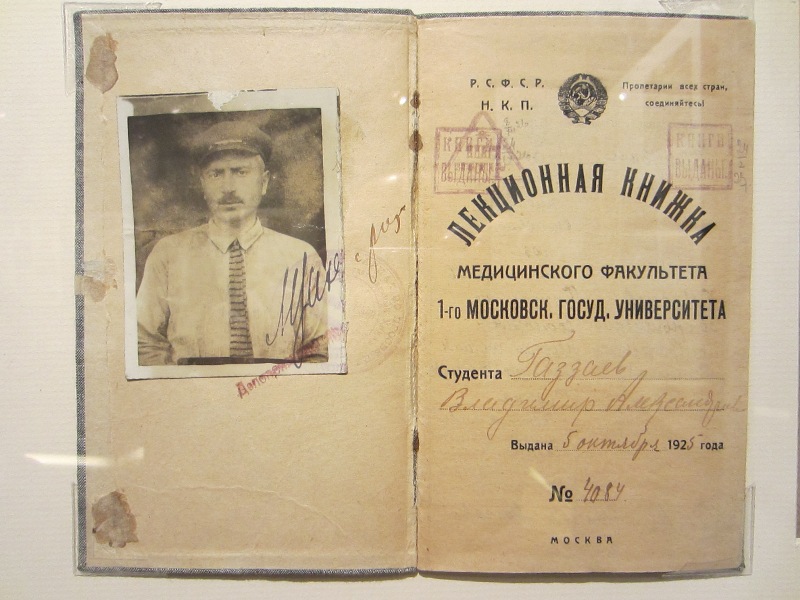 Р. С. Ф. С. Р.
Н. К. П.
Пролетарии всех стран,
соединяйтесь!
КНИГИ
ВЫДАНЫ
КНИГИ
ВЫДАНЫ
ЛЕКЦИОННАЯ КНИЖКА
МЕДИЦИНСКОГО ФАКУЛЬТЕТА
1-го МОСКОВСК. ГОСУД. УНИВЕРСИТЕТА
Студента Газзаев
Владимир Александров
Выдана 5 октября 1925 года
№ 4084
МОСКВА